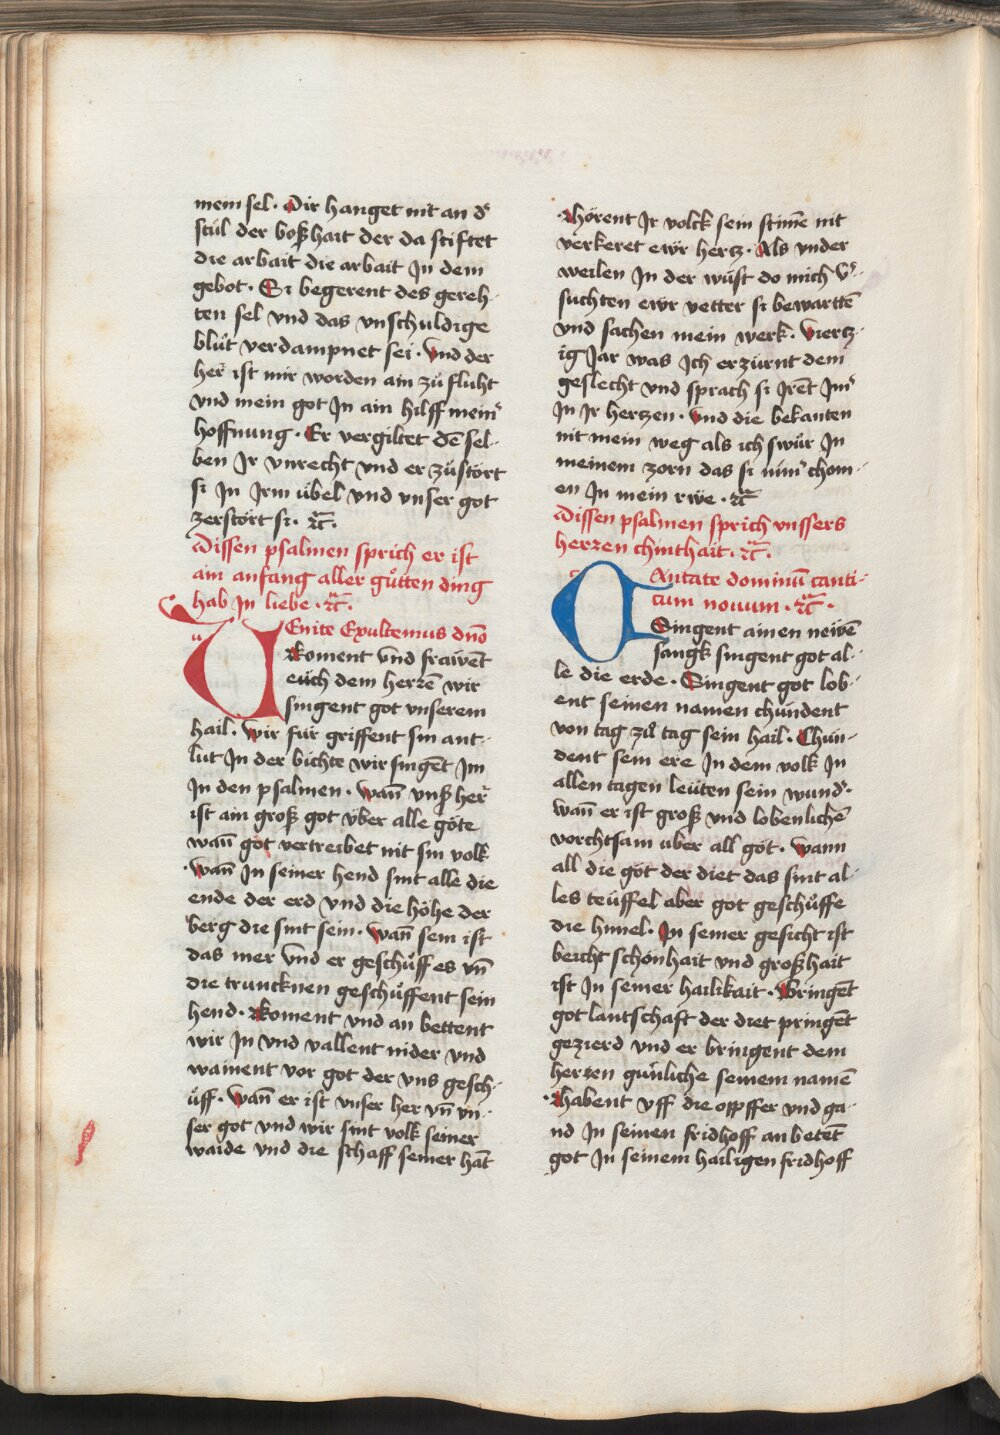 mein sel · Dir hanget nit an dˢ
stůl der boßhait der da stiftet
die arbait die arbait Jn dem
gebot · Si begerent des gereh-
ten sel vnd das vnschuldige
blůt verdampnet sei · Vnd der
her ist mir worden ain zů fluht
vnd mein got Jn ain hilff meinˢ
hoffnung · Er vergiltet dē sel-
ben Jr vnrecht vnd er zůstört
si Jn Jrm übel vnd vnser got
zerstört si · ꝛc̄ ·
Dissen psalmen sprich er ist
ain anfang aller gůtten ding
hab Jn liebe · ꝛc̄ ·
u
VEnite Exultemus dn̄o
Koment vnd frawēt
eüch dem herzē wir
singent got vnserem
hail · wir für griffent sin ant-
lüt Jn der bichte wir singēt Jm
Jn den psalmen · wan̄ vnß her
ist ain groß got über alle göte
wan̄ got vertreibet nit sin volk
· wan̄ Jn seiner hend sint alle die
ende der erd vnd die höhe der
berg die sint sein · wan̄ sein ist
das mer vnd er geschůff es vn̄
die truncknen geschůffent sein
hend · Koment vnd an bettent
wir Jn vnd vallent nider vnd
wainent vor got der vns gesch-
ůff · wan̄ er ist vnser her vn̄ vn-
ser got vnd wir sint volk seiner
waide vnd die schaff seiner hāt
· Hörent Jr volck sein stim̄e nit
verkeret ewr hertz · Als vnder
weilen Jn der wüst do mich vˢ-
suchten ewr vetter si bewartē
vnd sachen mein werk · viertz-
ig Jar was Jch erzürnt dem
geslecht vnd sprach si Jrēt Jmˢ
Jn Jr hertzen · vnd die bekanten
nit mein weg als ich swůr Jn
meinem zorn das si nim̄ˢ chom-
en Jn mein rwe · ꝛc̄
Dissen psalmen sprich vnssers
herzen chinthait · ꝛc̄ ·
c
CAntate dominū canti-
cum nouum · ꝛc̄ ·
Singent ainen neiwē
sangk singent got al-
le die erde · Singent got lob-
ent seinen namen chündent
von tag zů tag sein hail · Chün-
dent sein ere Jn dem volk Jn
allen tagen leüten sein wundˢ ·
wan̄ er ist groß vnd lobenlichē
vorchtsam über all göt · wann
all die göt der diet das sint al-
les teüffel aber got geschůffe
die himel · Jn seiner gesicht ist
beicht schönhait vnd großhait
ist Jn seiner hailikait · Bringēt
got lantschaft der diet pringēt
gezierd vnd er bringent dem
herzen günliche seinem namē
· Habent vff die opffer vnd ga-
nd Jn seinen fridhoff an betēt
got Jn seinem hailigen fridhoff